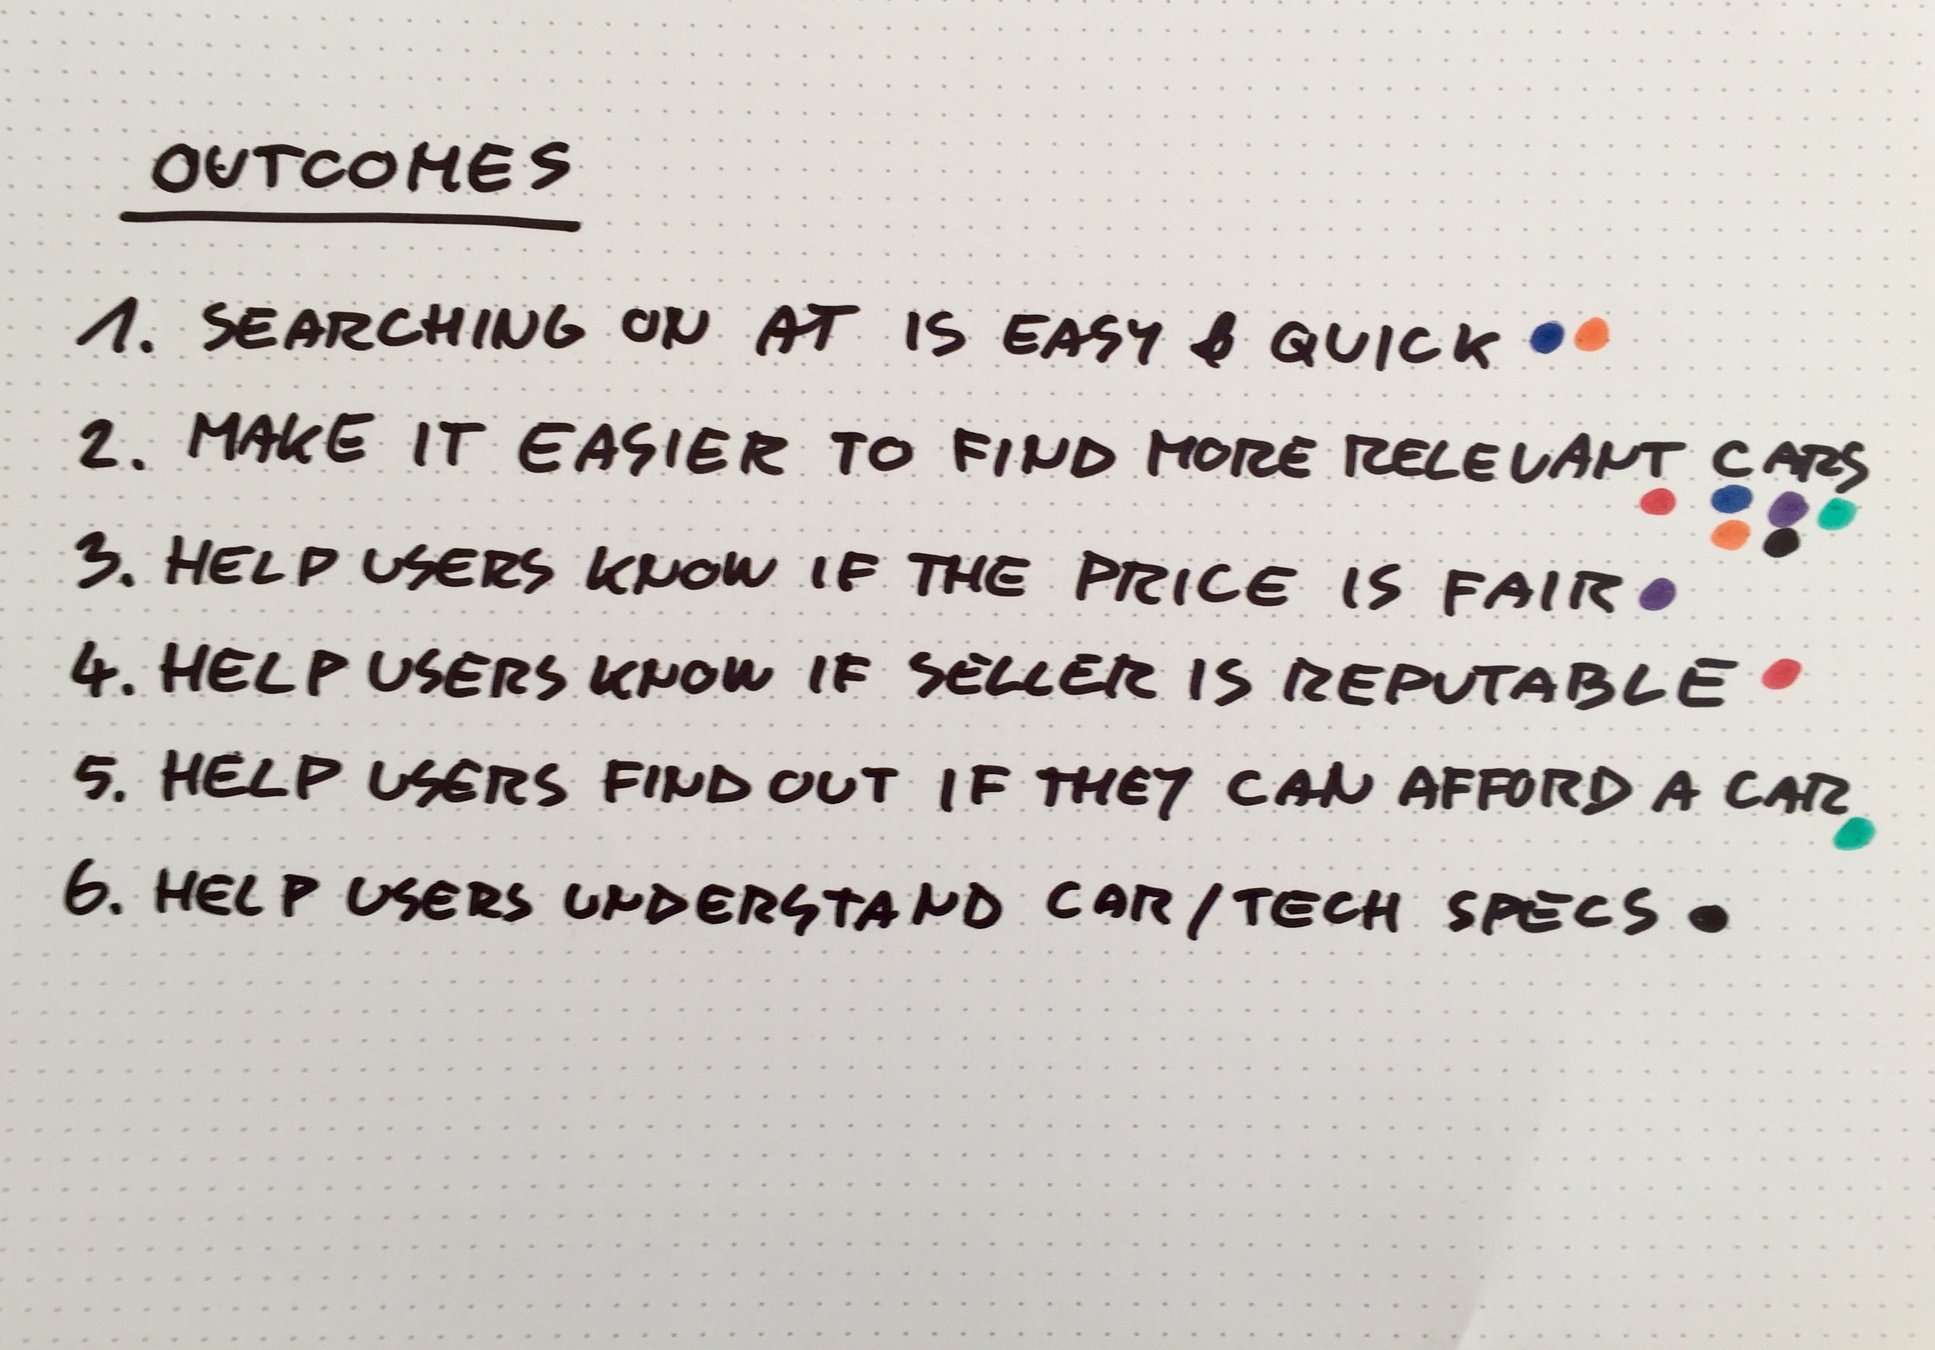 OUTCOMES
1. SEARCHING ON AT IS EASY & QUICK
2. MAKE IT EASIER TO FIND MORE RELEVANT CARS
3. HELP USERS KNOW IF THE PRICE IS FAIR
4. HELP USERS KNOW IF SELLER IS REPUTABLE
5. HELP USERS FIND OUT IF THEY CAN AFFORD A CAR
6. HELP USERS UNDERSTAND CAR/TECH SPECS